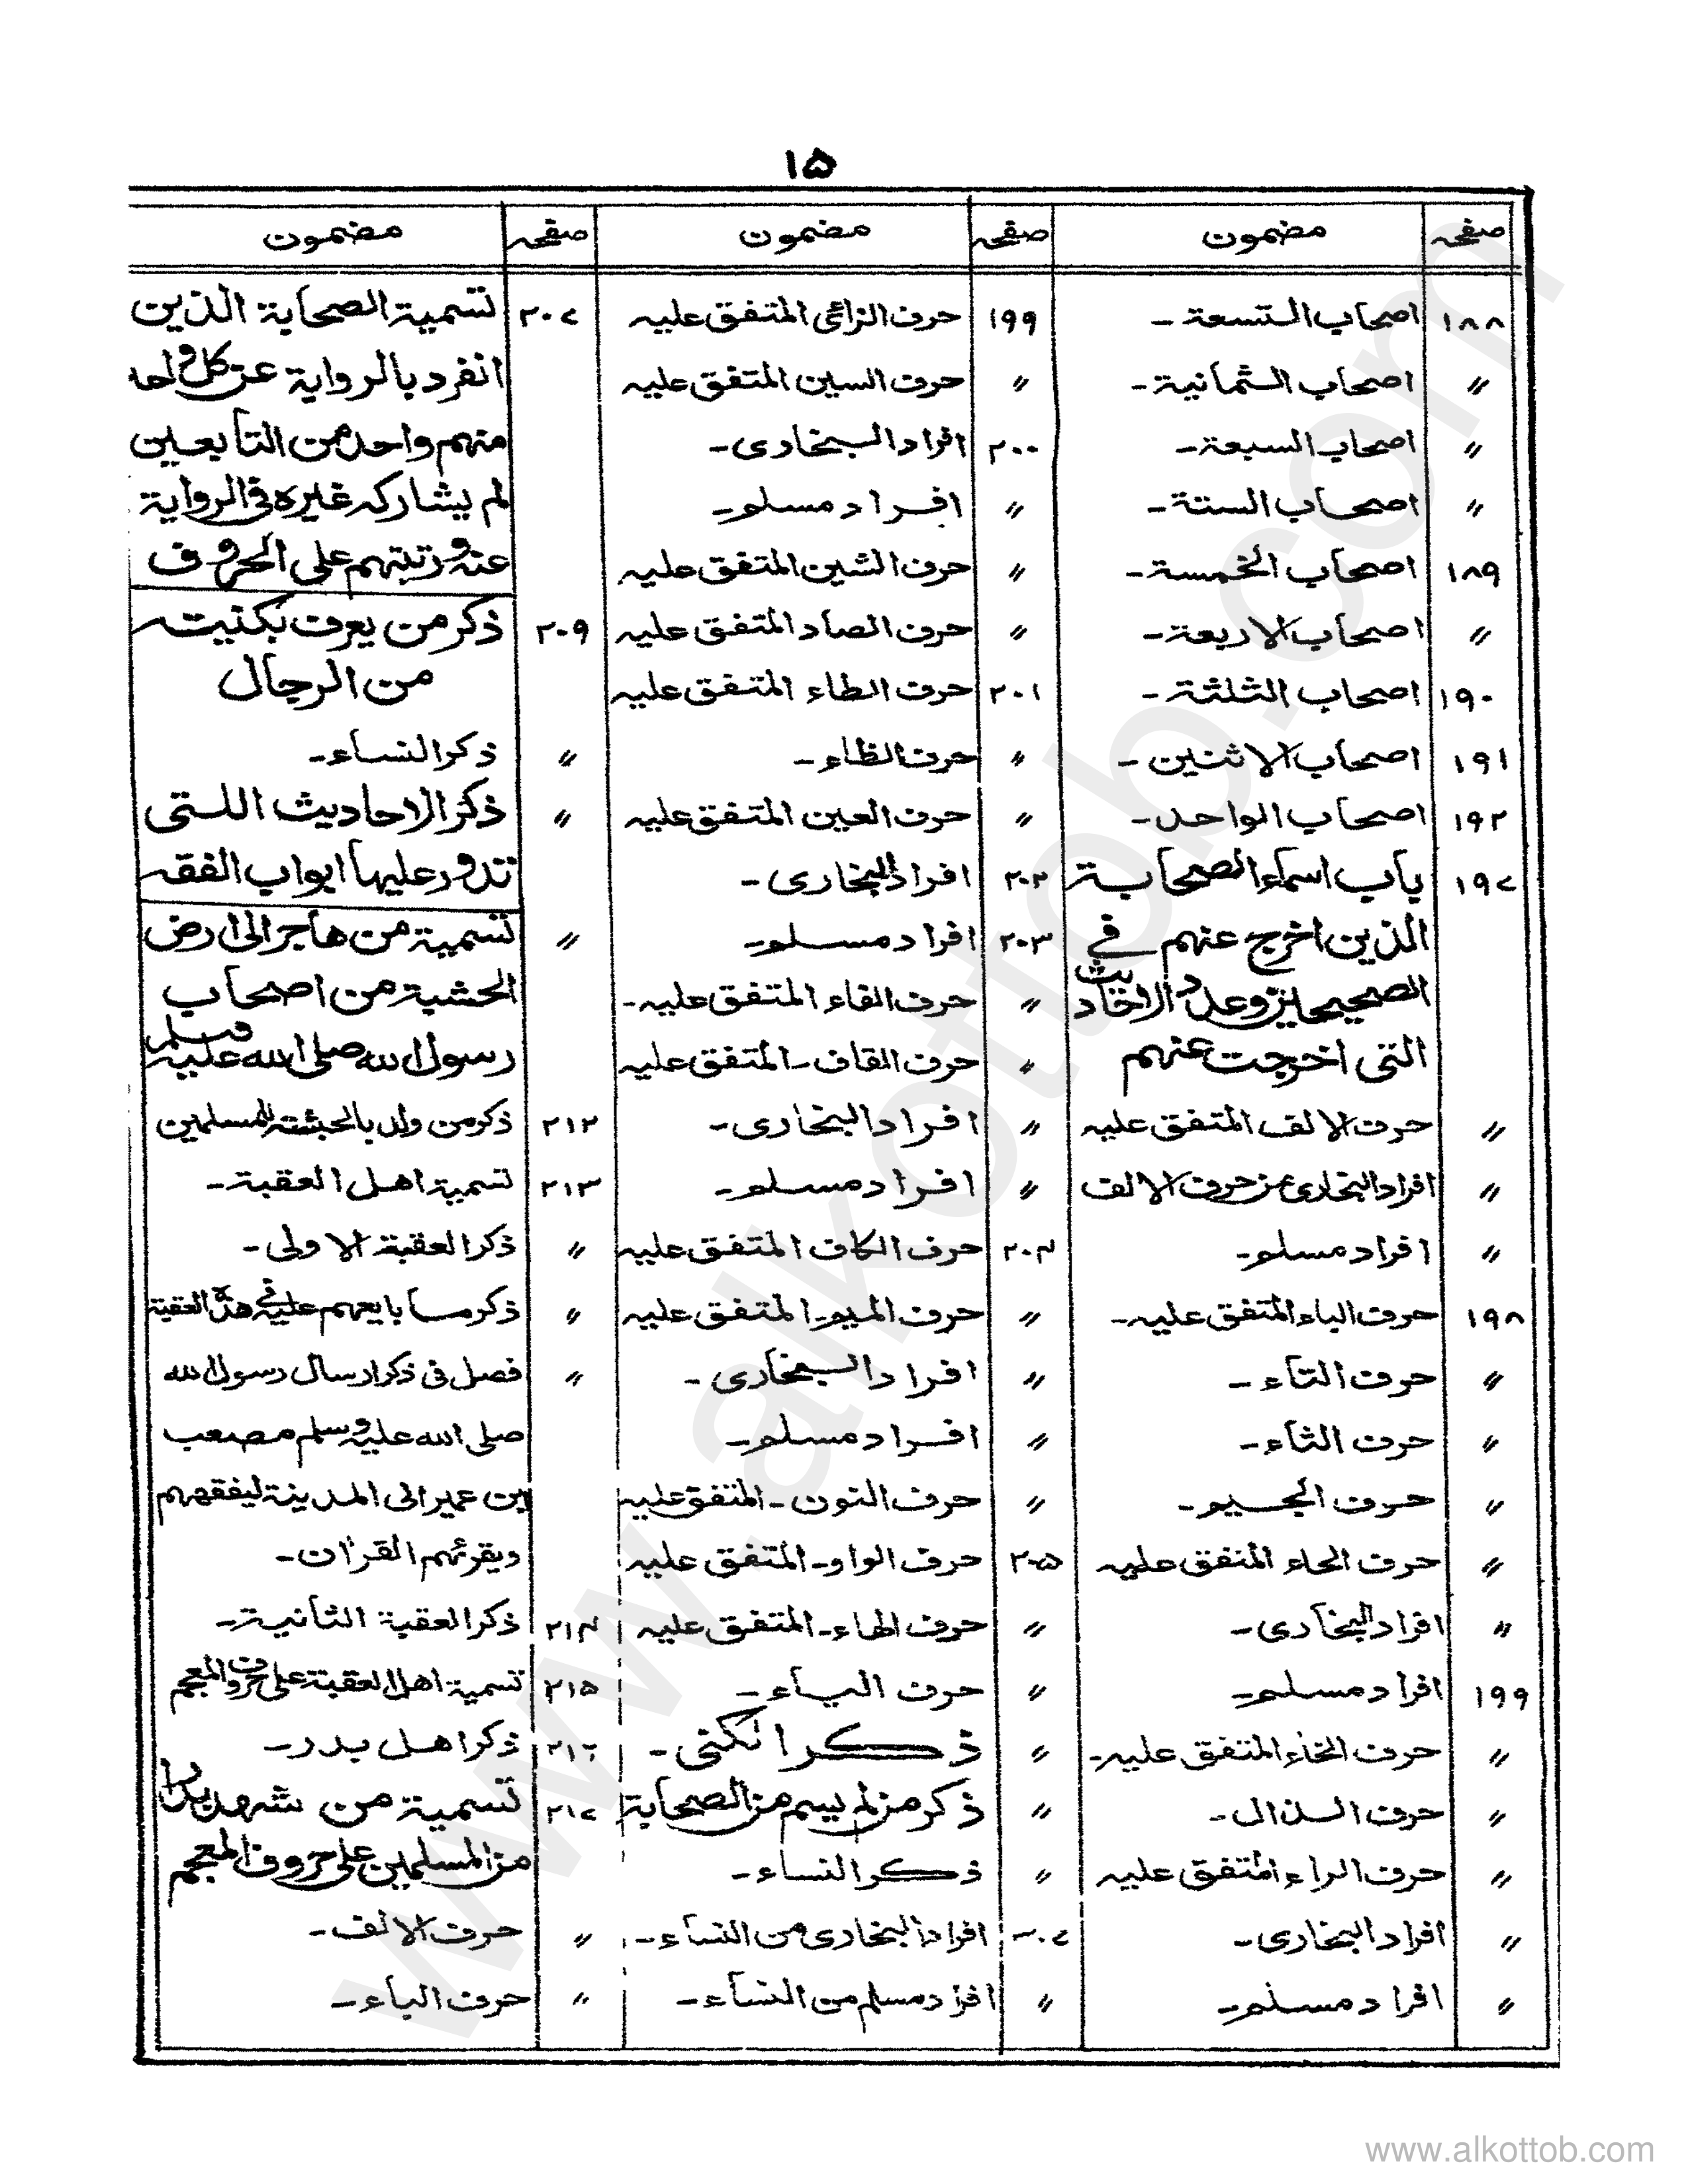 ۱۵
صفحہ مضمون صفحہ مضمون صفحہ مضمون
۱۸۸ اصحاب التسعة ـ
〃 اصحاب الثمانية ـ
〃 اصحاب السبعة ـ
〃 اصحاب الستة ـ
۱۸۹ اصحاب الخمسة ـ
〃 اصحاب الاربعة ـ
۱۹۰ اصحاب الثلثة ـ
۱۹۱ اصحاب الاثنين ـ
۱۹۲ اصحاب الواحد ـ
۱۹۷ باب اسماء الصحابة
الذين اخرج عنهم في
الصحيحين وعدد الاحاديث
التى اخرجت عنهم
〃 حرف الالف المتفق عليه
〃 افراد البخارى من حرف الالف
〃 افراد مسلم ـ
۱۹۸ حرف الباء المتفق عليه ـ
〃 حرف التاء ـ
〃 حرف الثاء ـ
〃 حرف الجيم ـ
〃 حرف الحاء المتفق عليه
〃 افراد البخارى ـ
۱۹۹ افراد مسلم ـ
〃 حرف الخاء المتفق عليه ـ
〃 حرف الذال ـ
〃 حرف الراء المتفق عليه
〃 افراد البخارى ـ
〃 افراد مسلم ـ
۱۹۹ حرف الزائى المتفق عليه
〃 حرف السين المتفق عليه
۲۰۰ افراد البخارى ـ
〃 افراد مسلم ـ
〃 حرف الشين المتفق عليه
〃 حرف الصاد المتفق عليه
۲۰۱ حرف الطاء المتفق عليه
〃 حرف الظاء ـ
〃 حرف العين المتفق عليه
۲۰۲ افراد البخارى ـ
۲۰۳ افراد مسلم ـ
〃 حرف الفاء المتفق عليه ـ
〃 حرف القاف ـ المتفق عليه
〃 افراد البخارى ـ
〃 افراد مسلم ـ
۲۰۴ حرف الكاف المتفق عليه
〃 حرف الميم ـ المتفق عليه
〃 افراد البخارى ـ
〃 افراد مسلم ـ
〃 حرف النون ـ المتفق عليه
۲۰۵ حرف الواو ـ المتفق عليه
〃 حرف الهاء ـ المتفق عليه
〃 حرف الياء ـ
〃 ذكر الكنى ـ
〃 ذكر من لم يسم من الصحابة
〃 ذكر النساء ـ
۲۰۷ افراد البخارى من النساء ـ
〃 افراد مسلم من النساء ـ
۲۰۷ تسمية الصحابة الذين
انفرد بالرواية عن كل واحد
منهم واحد من التابعين
لم يشاركه غيره فى الرواية
عنه ورتبتهم على الحروف
۲۰۹ ذكر من يعرف بكنيته
من الرجال
〃 ذكر النساء ـ
〃 ذكر الاحاديث اللتى
تدور عليها ابواب الفقه
〃 تسمية من هاجر الى ارض
الحشية من اصحاب
رسول الله صلى الله عليه وسلم
۲۱۲ ذكر من ولد بالحبشة للمسلمين
۲۱۳ تسمية اهل العقبة ـ
〃 ذكر العقبة الاولى ـ
〃 ذكر ما بايعهم عليه فى هذه العقبة
〃 فصل فى ذكر ارسال رسول الله
صلى الله عليه وسلم مصعب
بن عمير الى المدينة ليفقههم
ويقرئهم القرآن ـ
۲۱۴ ذكر العقبة الثانية ـ
۲۱۵ تسمية اهل العقبة على حروف المعجم
۲۱۶ ذكر اهل بدر ـ
۲۱۷ تسمية من شهد بدرا
من المسلمين على حروف المعجم
〃 حرف الالف ـ
〃 حرف الباء ـ
www.alkottob.com
www.alkottob.com